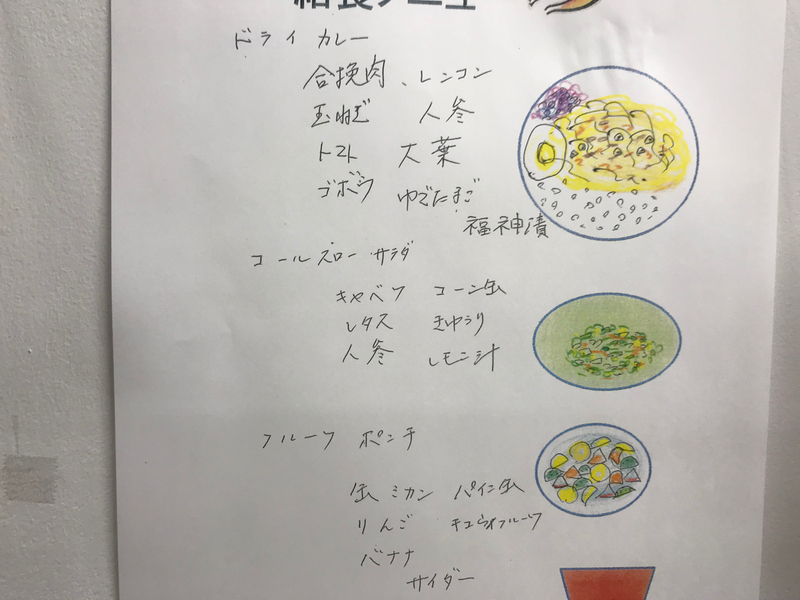 ドライ カレー
合挽肉、レンコン
玉ねぎ 人参
トマト 大葉
ゴボウ ゆでたまご
福神漬
コールスロー サラダ
キャベツ コーン缶
レタス きゅうり
人参 レモン汁
フルーツ ポンチ
缶ミカン パイン缶
りんご キュウイフルーツ
バナナ
サイダー